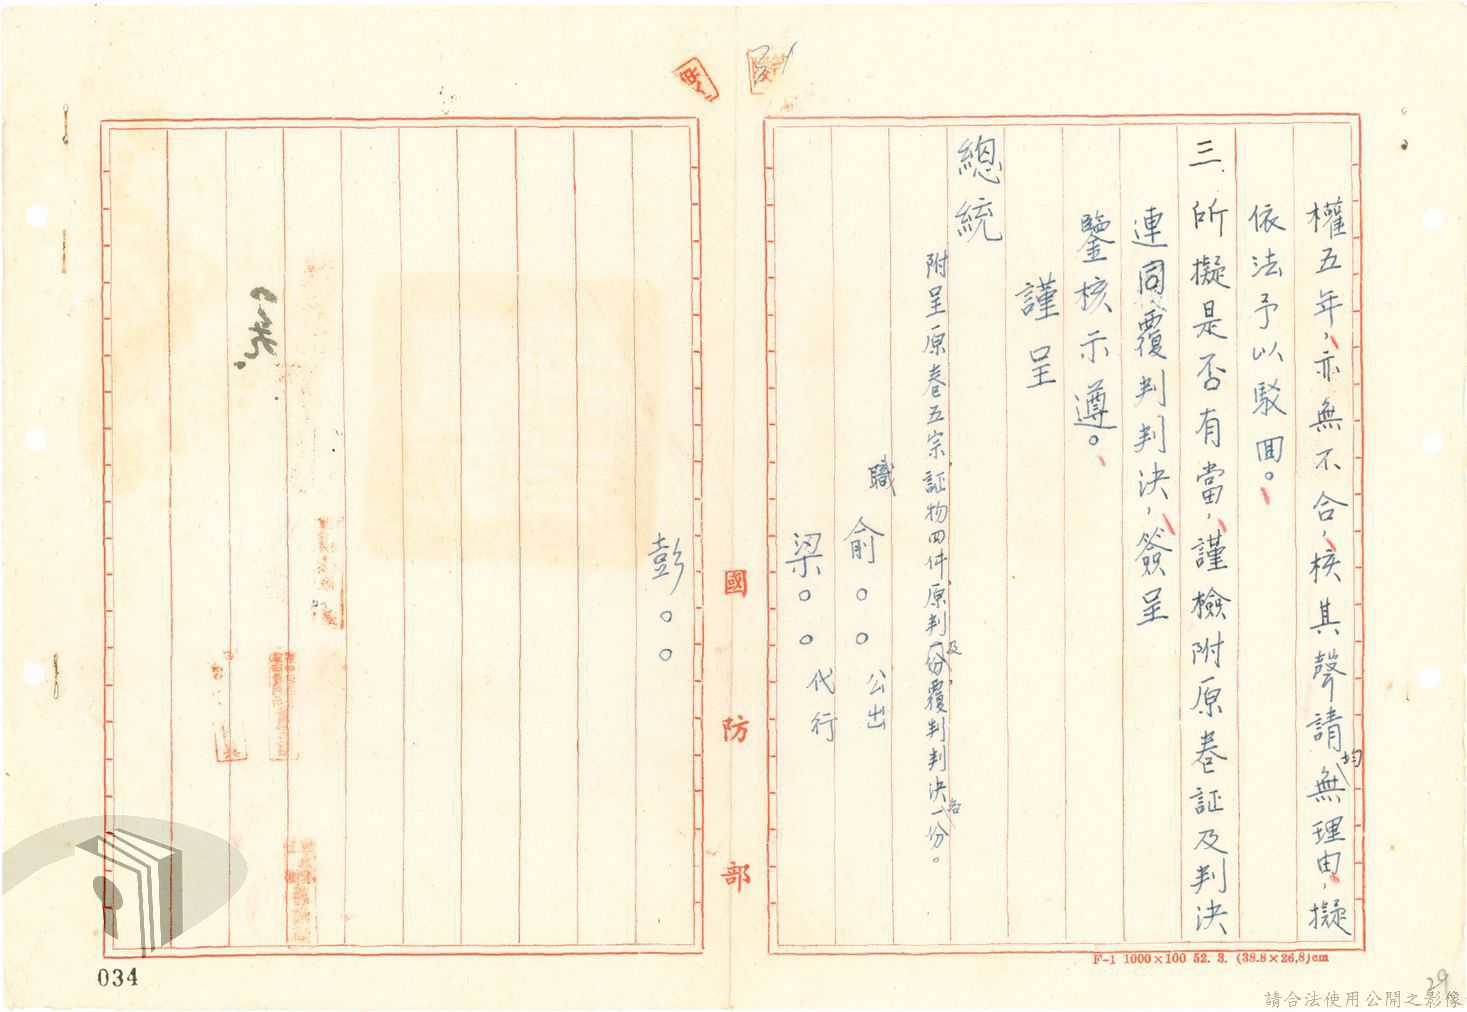 權五年，亦無不合，核其聲請均無理由，擬
依法予以駁回。
三、所擬是否有當，謹檢附原卷証及判決
連同覆判判決，簽呈
鑒核示遵。
謹呈
總統
附呈原卷五宗証物四件原判一份及覆判判決各一份。
職
俞○○公出
梁○○代行
彭○○
國防部
F-1 1000×100 52. 3. (38.8×26.8)cm
034
29
請合法使用公開之影像